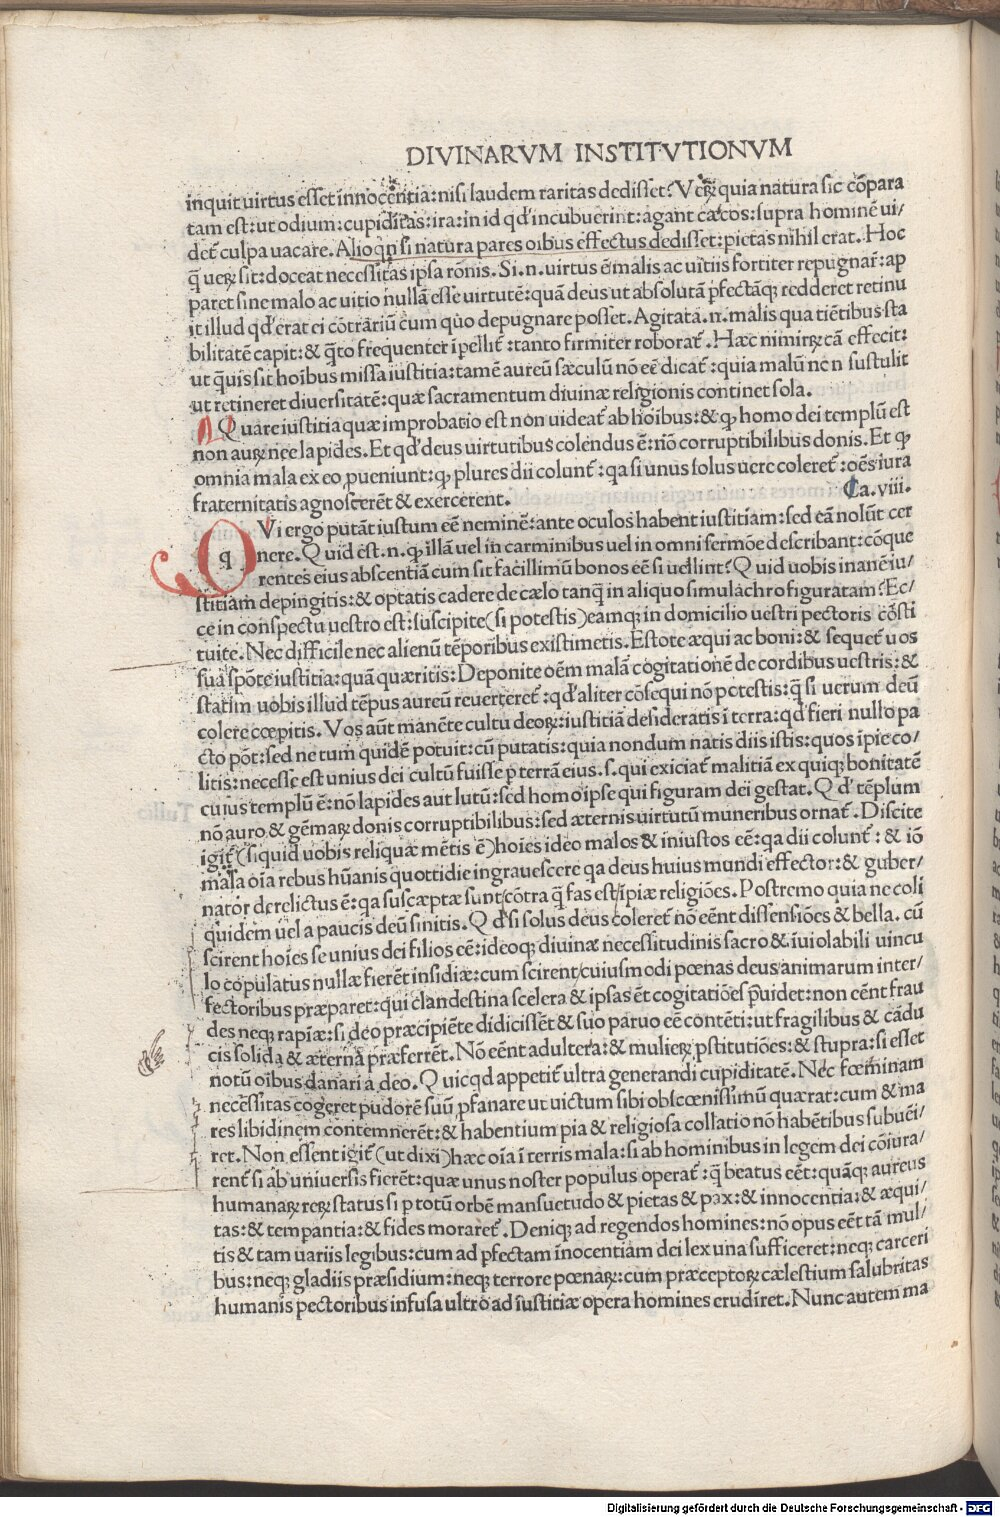 DIVINARVM INSTITVTIONVM
inquit uirtus esset innocentia: nisi laudem raritas dedisset? Veꝝ quia natura sic cōpara
tam est: ut odium: cupiditas: ira: in id qđ incubuerint: agant cæcos: supra hominē ui/
det̄ culpa uacare. Alioqn si natura pares oibus effectus dedisset: pietas nihil erat. Hoc
q̄ ueꝝ sit: doceat necessitas ipsa rōnis. Si .n. uirtus ē malis ac uitiis fortiter repugnar̄: ap
paret sine malo ac uitio nullā esse uirtutē: quā deus ut absolutā ꝑfectāqꝫ redderet retinu
it illud qđ erat ei cōtrāriū cum quo depugnare posset. Agitata .n. malis qua tiētibus sta
bilitatē capit: & q̄to frequenter īpellit̄: tanto firmiter roborat̄. Hæc nimirꝝ cā effecit:
ut q̄uis sit hoībus missa iustitia: tamē aureū sæculū nō eē dicat̄: quia malū nc n sustulit
ut retineret diuersitatē: quæ sacramentum diuinæ religionis continet sola.
Quare iustitia quæ improbatio est non uideat̄ ab hoībus: & qꝫ homo dei templū est
non auꝝ nec lapides. Et qđ deus uirtutibus colendus ē: nō corruptibilibus donis. Et qꝫ
omnia mala ex eo ꝓueniunt: qꝫ plures dii colunt̄: qa si unus solus uere coleret̄: oēs iura
fraternitatis agnoscerēt & exercerent. Ca. viii.
QVi ergo putāt iustum eē neminē: ante oculos habent iustitiam: sed eā nolūt cer
q nere. Quid est .n. qꝫ illā uel in carminibus uel in omni sermōe describant: cōque
rentes eius abscentiā cum sit facillimū bonos eē si uellint? Quid uobis inanē iu/
stitiam depingitis: & optatis cadere de cælo tanq̄ in aliquo simulachro figuratam? Ec/
ce in conspectu uestro est: suscipite (si potestis) eamqꝫ in domicilio uestri pectoris cōsti
tuite. Nec difficile nec alienū tēporibus existimetis. Estote æqui ac boni: & sequet̄ uos
sua spōte iustitia: quā quæritis: Deponite oēm malā cogitationē de cordibus uestris: &
statim uobis illud tēpus aureū reuerteret̄: qđ aliter cōsequi nō potestis: q̄ si uerum deū
colere cœpitis. Vos aūt manēte cultu deoꝝ: iustitiā desideratis ī terra: qđ fieri nullo pa
cto pōt: sed ne tum quidē potuit: cū putatis: quia nondum natis diis istis: quos īpie co/
litis: necesse est unius dei cultū fuisse ꝑ terrā eius .s. qui exiciat̄ malitiā exquiqꝫ bonitatē
cuius templū ē: nō lapides aut lutū: sed homo ipse qui figuram dei gestat. Qđ tēplum
nō auro & gēmaꝝ donis corruptibilibus: sed æternis uirtutū muneribus ornat̄. Discite
igit̄ (siquid uobis reliquæ mētis ē) hoīes ideo malos & iniustos eē: qa dii colunt̄: & iō
mala oīa rebus hūanis quottidie ingrauescere qa deus huius mundi effector: & guber/
nator derelictus ē: qa susceptæ sunt cōtra q̄ fas est īpiæ religiōes. Postremo quia ne coli
quidem uel a paucis deū sinitis. Qđ si solus deus coleret̄ nō eēnt dissensiōes & bella. cū
scirent hoīes se unius dei filios eē: ideoqꝫ diuinæ necessitudinis sacro & īuiolabili uincu
lo copulatus nullæ fierēt insidiæ: cum scirent cuiusmodi pœnas deus animarum inter/
fectoribus præparet: qui clandestina scelera & ipsas ēt cogitatiōes ꝑuidet: non eēnt frau
des neqꝫ rapīæ: si deo præcipiēte didicissēt & suo paruo eē contēti: ut fragilibus & cādu
cis solida & æterna præferrēt. Nō eēnt adultera: & mulieꝝ ꝓstitutiōes: & stupra: si esset
notū oībus danari a deo. Quicqd appetit̄ ultra generandi cupiditatē. Nec fœminam
necessitas cogeret pudorē suū ꝓfanare ut uictum sibi obscœnissimū quærat: cum & ma
res libidinem contemnerēt: & habentium pia & religiosa collatio nō habētibus subuēi/
ret. Non essent igit̄ (ut dixi) hæc oīa ī terris mala: si ab hominibus in legem dei cōiura/
rent̄ si ab uniuersis fierēt: quæ unus noster populus operat̄: q̄ beatus eēt: quāqꝫ aureus
humanaꝝ reꝝ status si ꝑ totū orbē mansuetudo & pietas & pax: & innocentia: & æqui/
tas: & temꝑantia: & fides moraret̄. Deniqꝫ ad regendos homines: nō opus eēt tā mul/
tis & tam uariis legibus: cum ad ꝑfectam inocentiam dei lex una sufficeret: neqꝫ carceri
bus: neqꝫ gladiis præsidium: neqꝫ terrore pœnaꝝ: cum præceptoꝝ cælestium salubritas
humanis pectoribus infusa ultro ad iustitiæ opera homines erudiret. Nunc autem ma
Digitalisierung gefördert durch die Deutsche Forschungsgemeinschaft - DFG